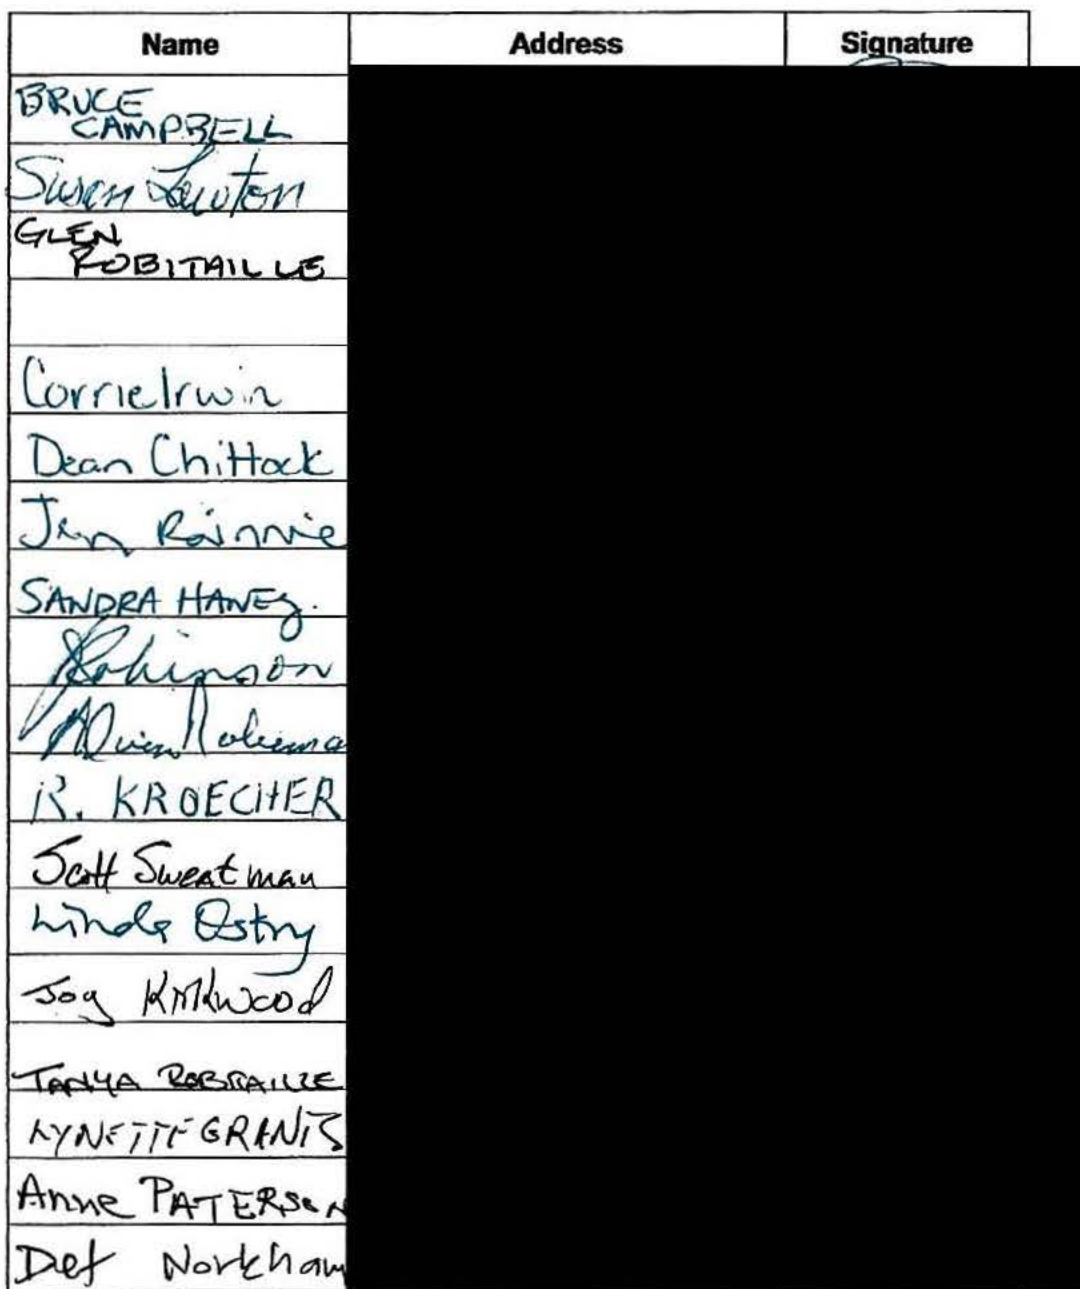 Name Address Signature
BRUCE
CAMPBELL
Susan Lawton
GLEN
ROBITAILLE
Corrie Irwin
Dean Chittock
Jen Rainnie
SANDRA HANEY.
Robinson
R. KROECHER
Scott Sweatman
Linda Ostry
Joy Kirkwood
TANYA ROBITAILLE
LYNETTE GRANTS
Anne PATERSON
Norkham